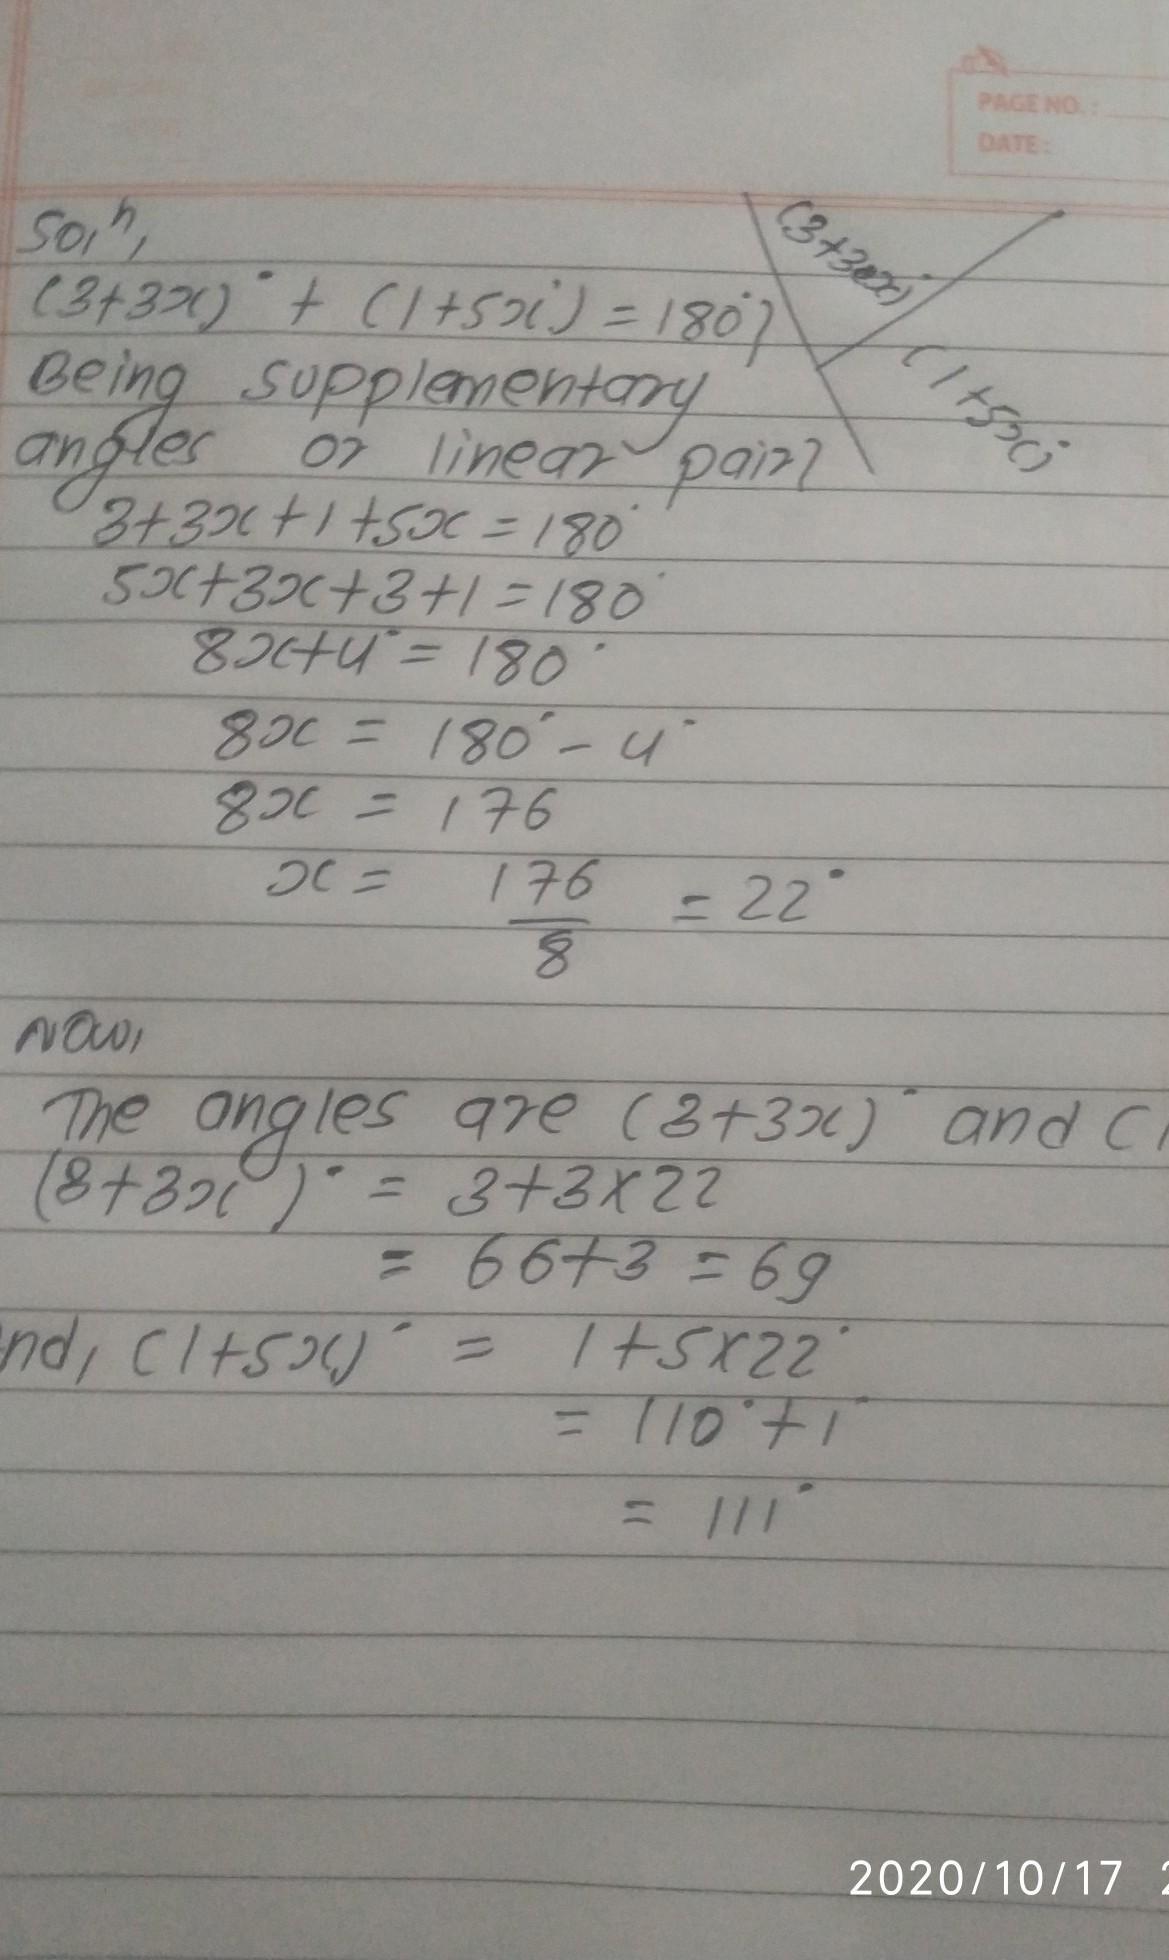 PAGE NO. :
DATE :
Soln,
(3+3x)° + (1+5x°) = 180°]
Being supplementary
angles or linear pair]
(3+3x)°
(1+5x)°
3+3x+1+5x = 180°
5x+3x+3+1 = 180°
8x+4° = 180°
8x = 180° - 4°
8x = 176
x = 176/8 = 22°
Now,
The angles are (3+3x)° and (1
(3+3x)° = 3+3×22
= 66+3 = 69
nd, (1+5x)° = 1+5×22°
= 110°+1°
= 111°
2020/10/17